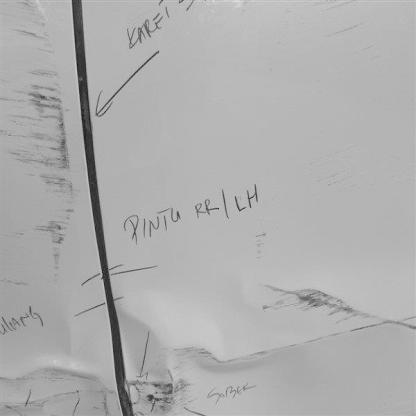 KARET
PINTU RR/LH
SOBEK